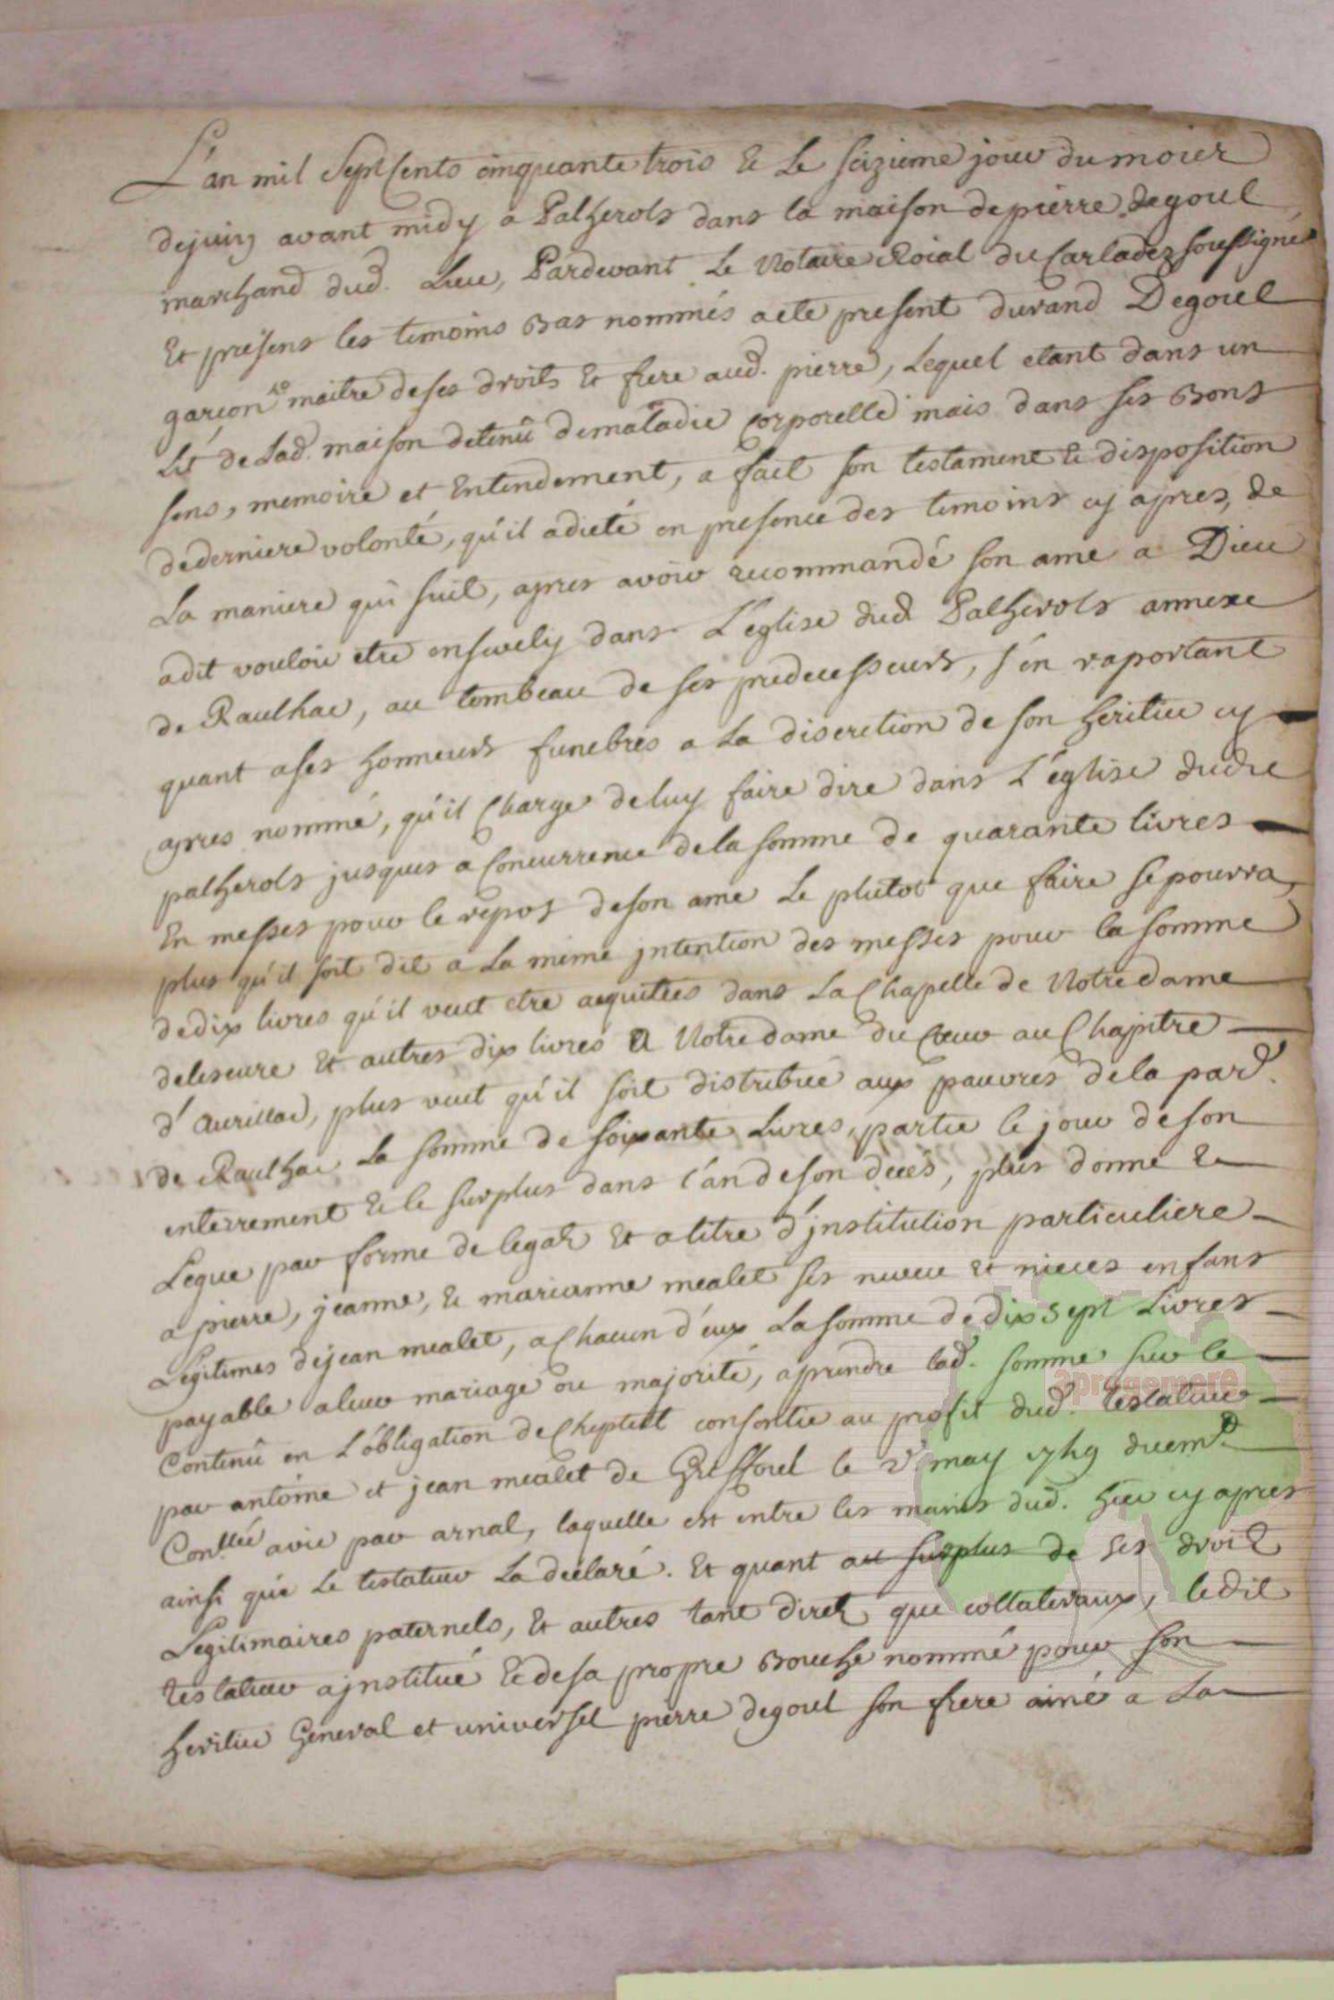 L'an mil Sept Cents cinquante trois & Le seizieme jour du mois
de juin avant midy a Palherols dans la maison de pierre degoul
marchand dud. Lieu, Pardevant Le Notaire Roial du Carladez soussigné
Et presens les temoins Bas nommés a ete present durand Degoul
garcon maitre de ses droits Et frere aud. pierre, Lequel etant dans un
Lit de Lad. maison detenû de maladie corporelle mais dans ses Bons
sens, memoire et Entendement, a fait son testament & disposition
de derniere volonté, qu'il a dicté en presence des temoins cy apres, de
La maniere qui suit, apres avoir recommandé son ame a Dieu
a dit vouloir etre ensevely dans L'eglise dud Palherols annexe
de Raulhac, au tombeau de ses predecesseurs, s'en raportant
quant a ses honneurs funebres a La discretion de son heritier cy
apres nommé, qu'il Charge de luy faire dire dans L'eglise dudit
palherols jusques a Concurrence de la somme de quarante livres
En messes pour le repos de son ame Le plutot que faire se pourra,
plus qu'il soit dit a La meme jntention des messes pour la somme
de dix livres qu'il veut etre acquitées dans La Chapelle de Notre dame
de lescure Et autres dix livres a Notre dame du Cœur au Chapitre
d'Aurillac, plus veut qu'il soit distribué aux pauvres de la pard.
de Raulhac La somme de soixante Livres, partie le jour de son
enterrement & le surplus dans l'an de son decés, plus donne &
Legue par forme de legat Et a titre d'jnstitution particuliere
a pierre, jeanne, & marianne mealet ses neveu et nieces enfans
Legitimes de jean mealet, a Chacun d'eux La somme de dix sept Livres
payable a leur mariage ou majorité, a prendre lad. somme sur le
Contenû en L'obligation de Cheptel consentie au profit dud. testateur
par antoine et jean mealet de Griffoul le may 1749 duemt
Conllée avic par arnal, laquelle est entre les mains dud. hер cy apres
ainsi que Le testateur La declaré. Et quant au surplus de ses droits
Legitimaires paternels, Et autres tant direts que collateraux, ledit
testateur a jnstitué & de sa propre Bouche nommé pour son
heritier General et universel pierre degoul son frere ainé a La
3pragemere